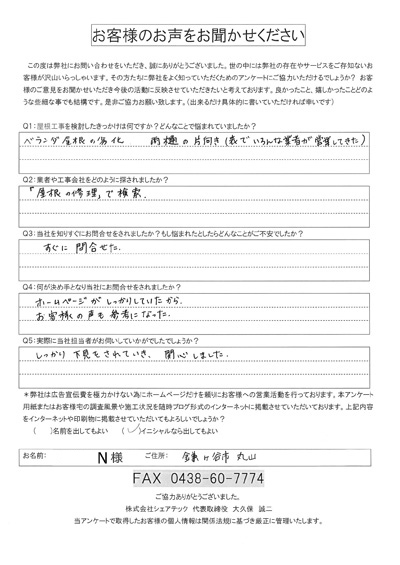 お客様のお声をお聞かせください
この度は弊社にお問い合わせをいただき、誠にありがとうございました。世の中には弊社の存在やサービスをご存知ないお
客様が沢山いらっしゃいます。その方たちに弊社をよく知っていただくためのアンケートにご協力いただけるでしょうか？ お客
様のご意見をお聞かせいただき今後の活動に反映させていただきたいと考えております。良かったこと、嬉しかったことどのよ
うな些細な事でも結構です。是非ご協力お願い致します。（出来るだけ具体的に書いていただければ幸いです）
Q1：屋根工事を検討したきっかけは何ですか？どんなことで悩まれていましたか？
ベランダ屋根の劣化 雨樋の片向き（表でいろんな業者が営業してきた）
Q2：業者や工事会社をどのように探されましたか？
「屋根の修理」で検索.
Q3：当社を知りすぐにお問合せをされましたか？もし悩まれたとしたらどんなことがご不安でしたか？
すぐに 問合せた.
Q4：何が決め手となり当社にお問合せをされましたか？
ホームページが しっかりしていたから.
お客様の声も 参考になった.
Q5：実際に当社担当者がお伺いしていかがでしたでしょうか？
しっかり 下見をされていき、 関心しました.
＊弊社は広告宣伝費を極力かけない為にホームページだけを頼りにお客様への営業活動を行っております。本アンケート
用紙またはお客様宅の調査風景や施工状況を随時ブログ形式のインターネットに掲載させていただいております。上記内容
をインターネットや印刷物に掲載させていただいてもよろしいでしょうか？
（ ）名前を出してもよい （✓）イニシャルなら出してもよい
お名前： N 様 ご住所： 鎌ヶ谷市 丸山
FAX 0438-60-7774
ご協力ありがとうございました。
株式会社シェアテック 代表取締役 大久保 誠二
当アンケートで取得したお客様の個人情報は関係法規に基づき厳正に管理いたします。